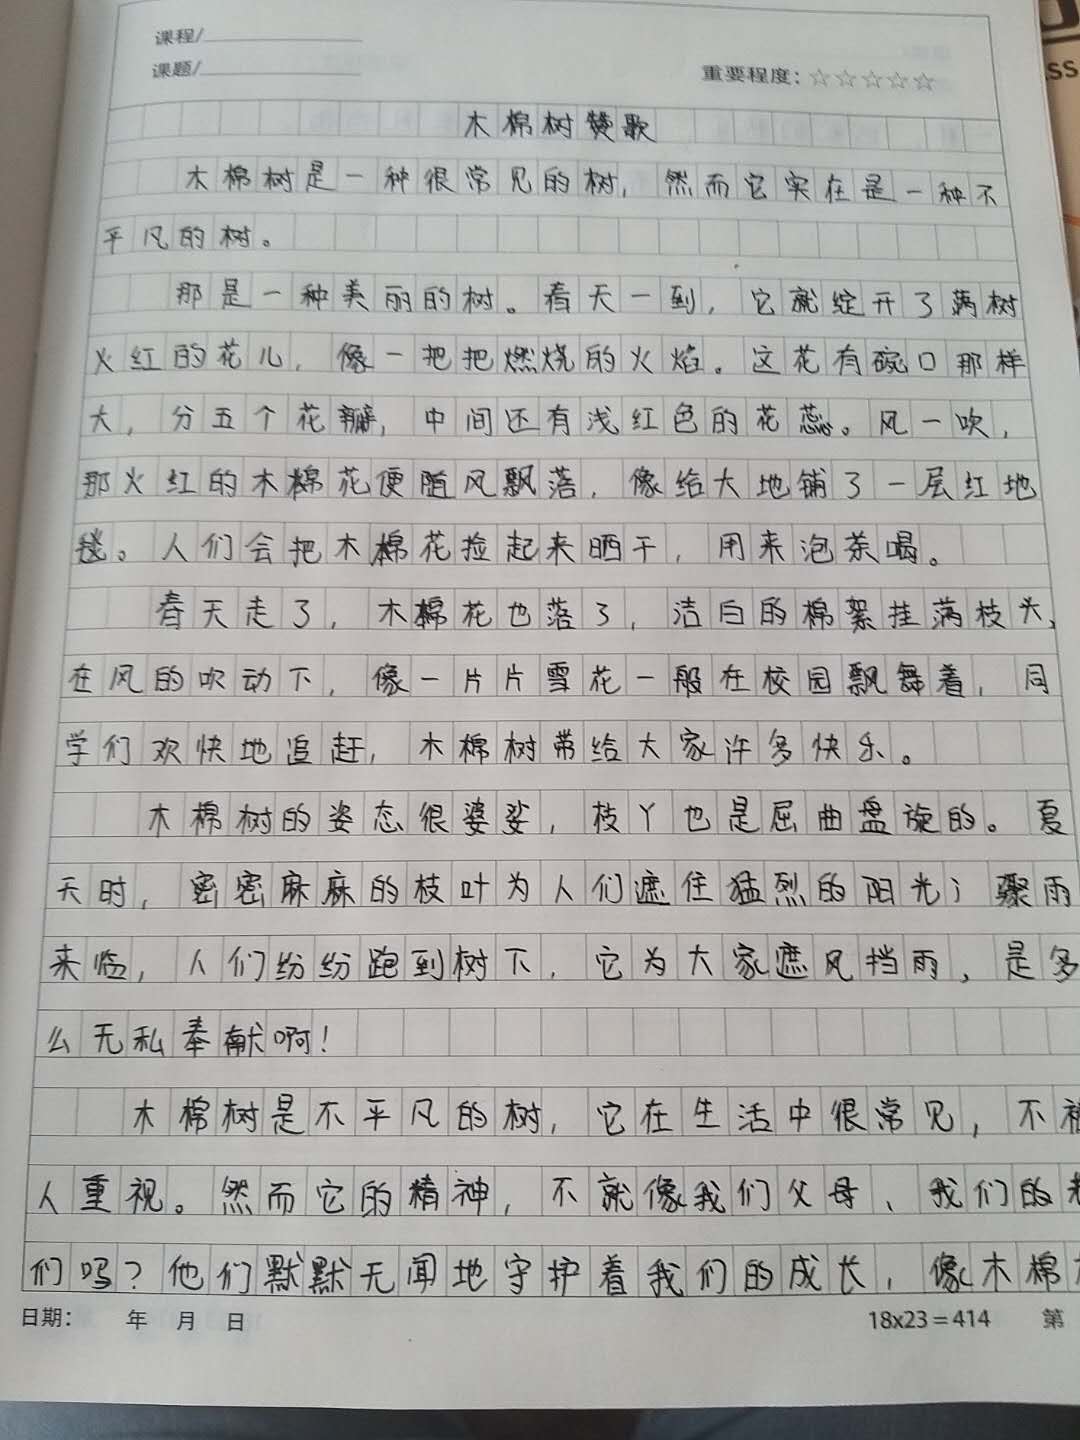 课程/
课题/
重要程度：☆☆☆☆☆
木棉树赞歌
木棉树是一种很常见的树，然而它实在是一种不
平凡的树。
那是一种美丽的树。春天一到，它就绽开了满树
火红的花儿，像一把把燃烧的火焰。这花有碗口那样
大，分五个花瓣，中间还有浅红色的花蕊。风一吹，
那火红的木棉花便随风飘落，像给大地铺了一层红地
毯。人们会把木棉花捡起来晒干，用来泡茶喝。
春天走了，木棉花也落了，洁白的棉絮挂满枝头，
在风的吹动下，像一片片雪花一般在校园飘舞着，同
学们欢快地追赶，木棉树带给大家许多快乐。
木棉树的姿态很婆娑，枝丫也是屈曲盘旋的。夏
天时，密密麻麻的枝叶为人们遮住猛烈的阳光；骤雨
来临，人们纷纷跑到树下，它为大家遮风挡雨，是多
么无私奉献啊！
木棉树是不平凡的树，它在生活中很常见，不被
人重视。然而它的精神，不就像我们父母、我们的
们吗？他们默默无闻地守护着我们的成长，像木棉
日期： 年 月 日
18x23=414 第